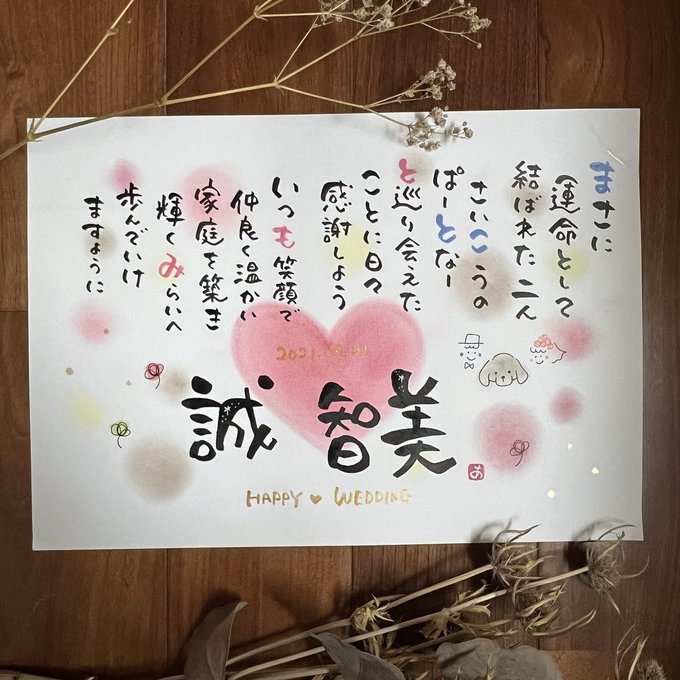 まさに
運命として
結ばれた二人
さいこうの
ぱーとなー
と巡り会えた
ことに日々
感謝しよう
いつも笑顔で
仲良く温かい
家庭を築き
輝くみらいへ
歩んでいけ
ますように
誠 智美
あ
HAPPY ♥ WEDDING